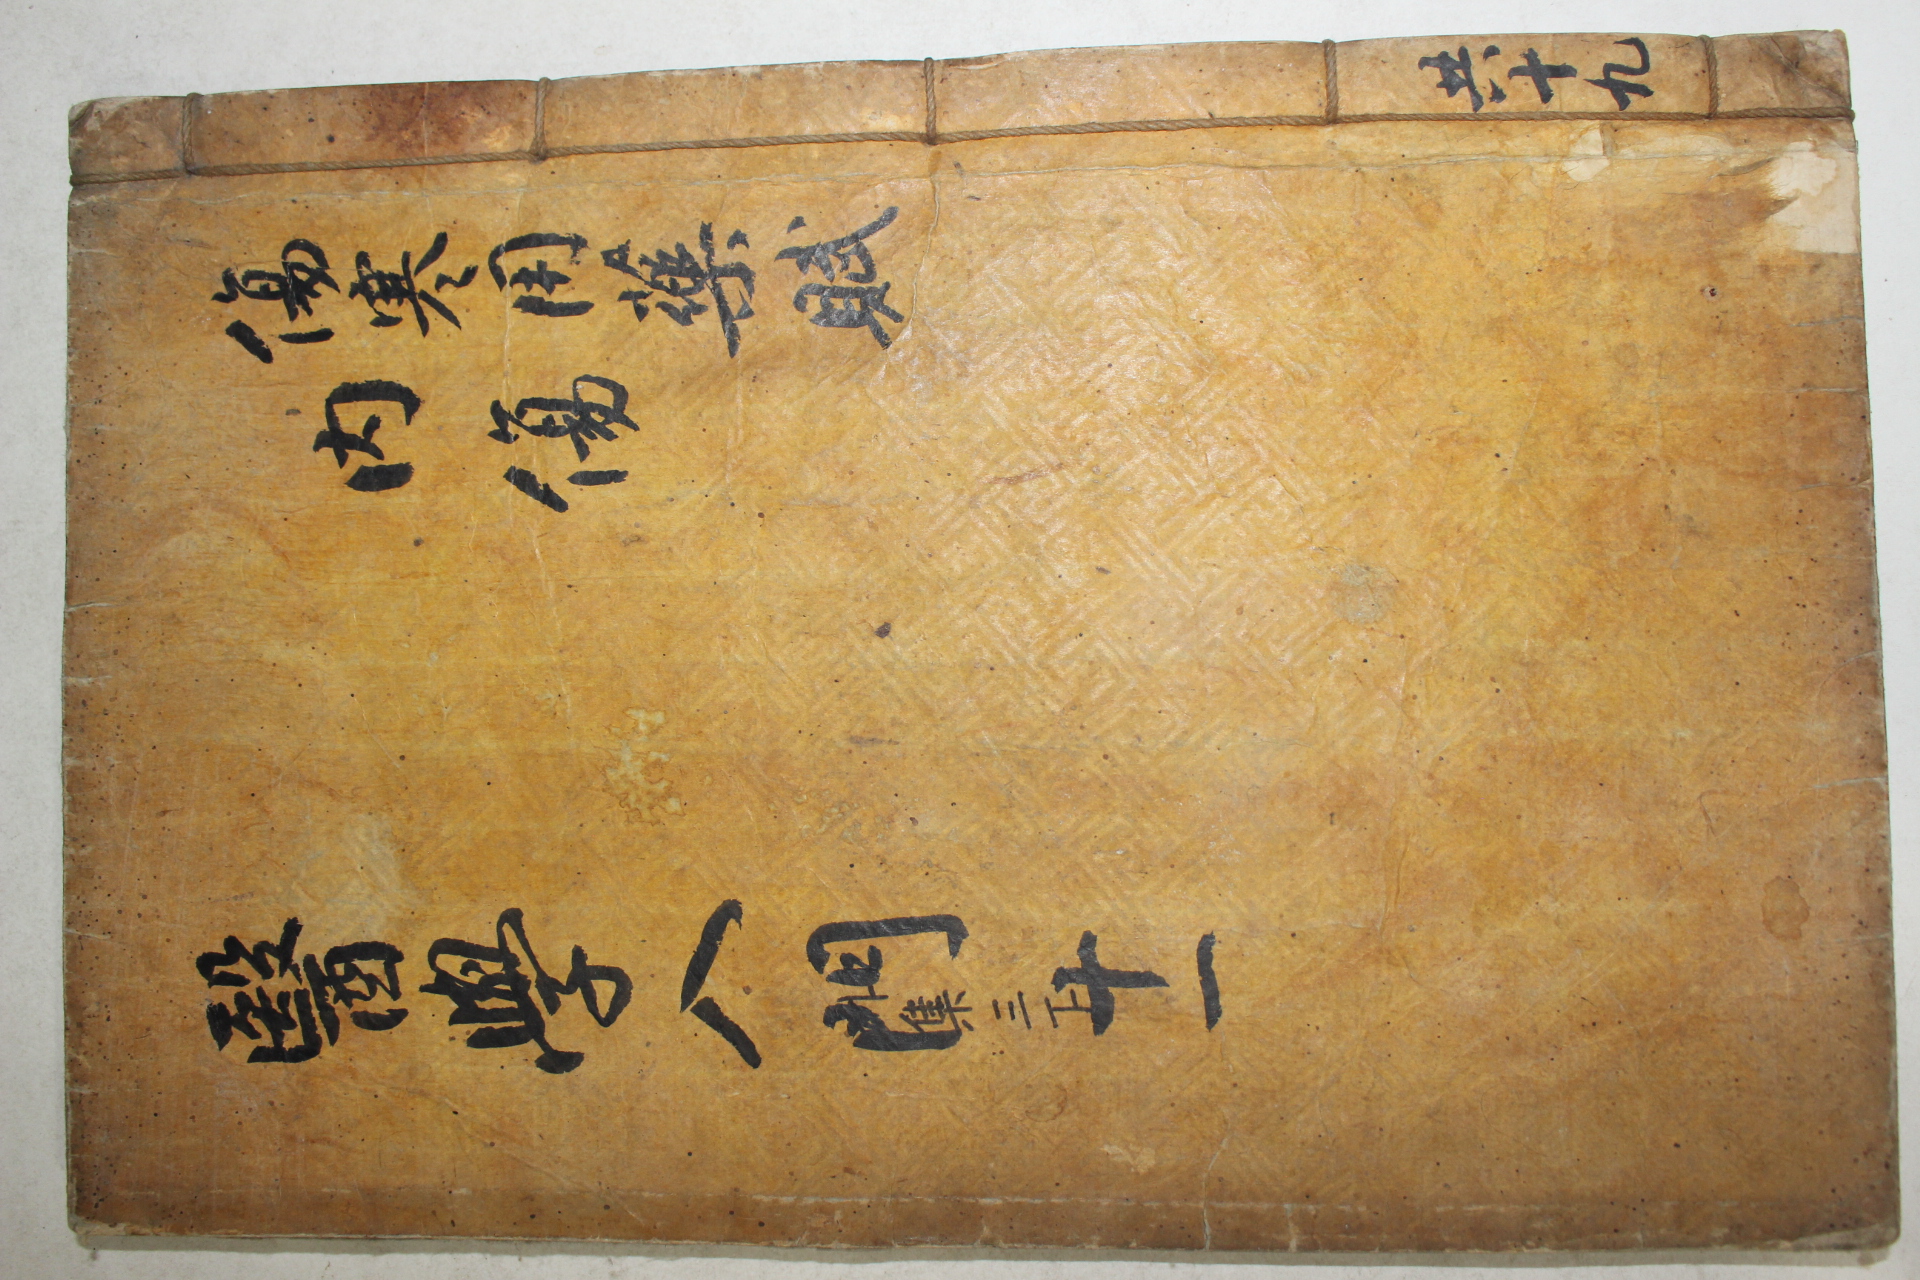 傷寒用藥賦
內傷
醫學入門 十一
集三上
共十九